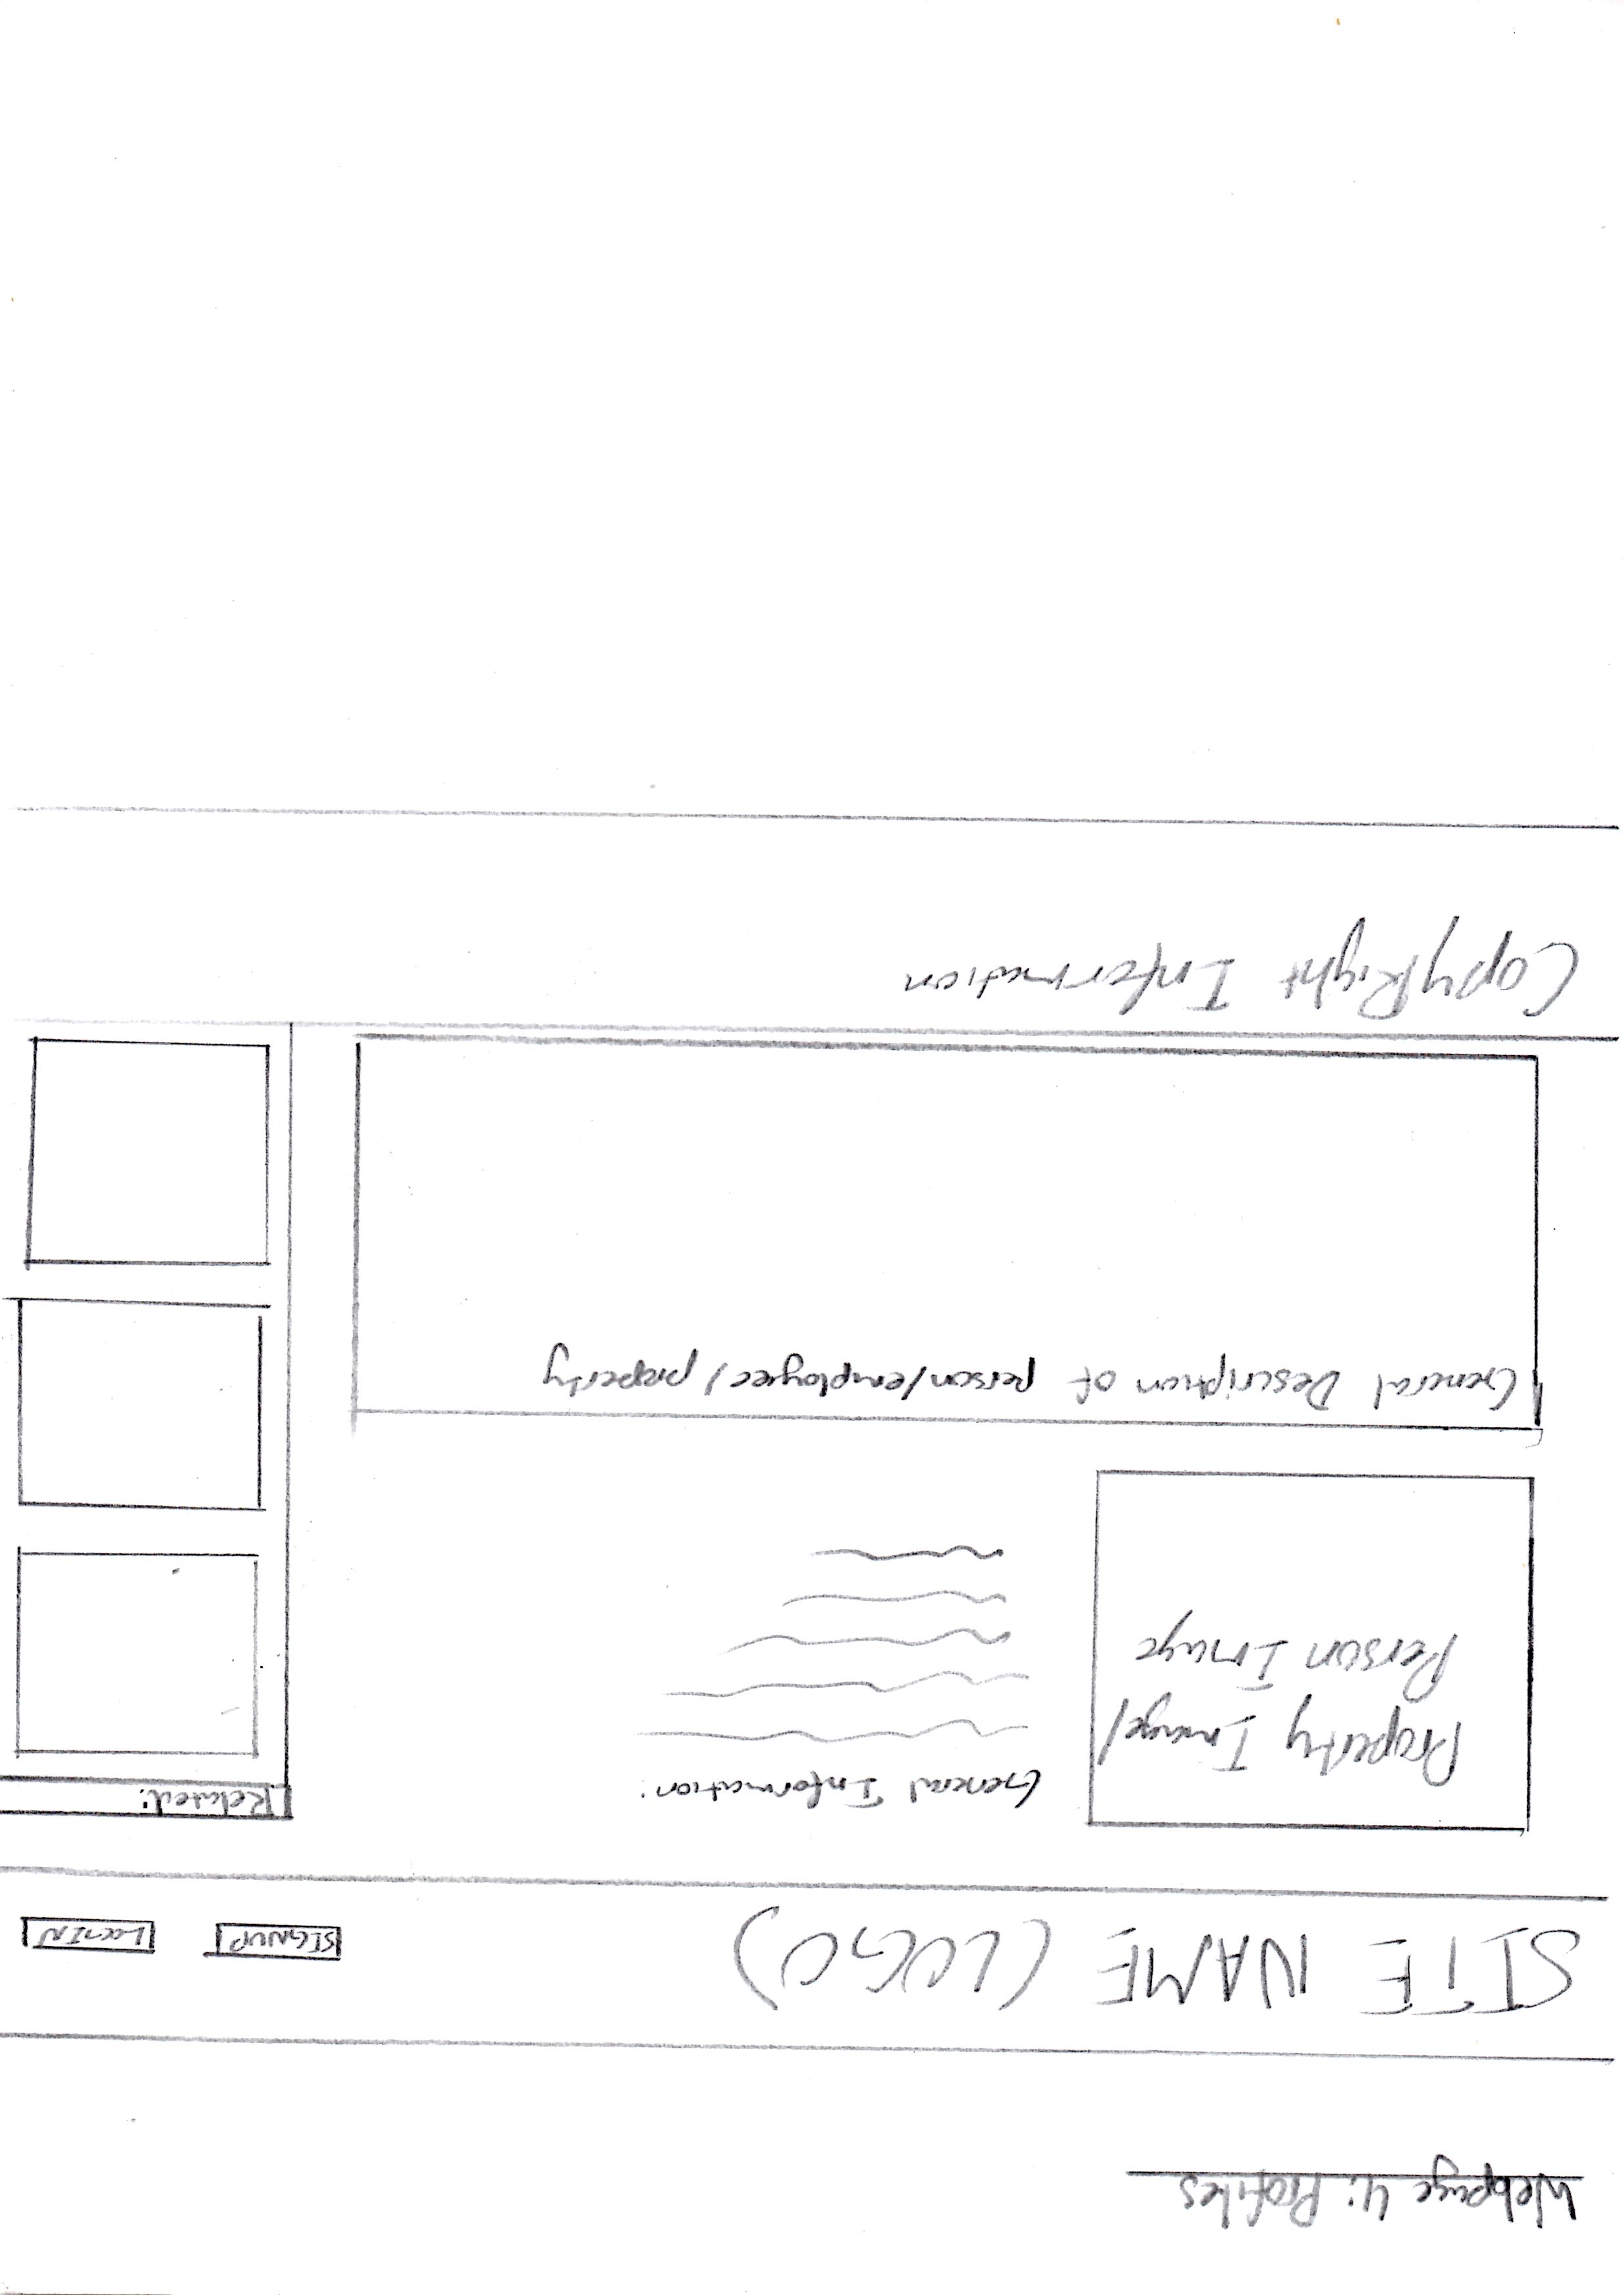 Webpage 4: Profiles
SITE NAME (LOGO)
SIGNUP
LOGIN
Property Image/
Person Image
General Information:
Related:
General Description of person/employee/property
CopyRight Information